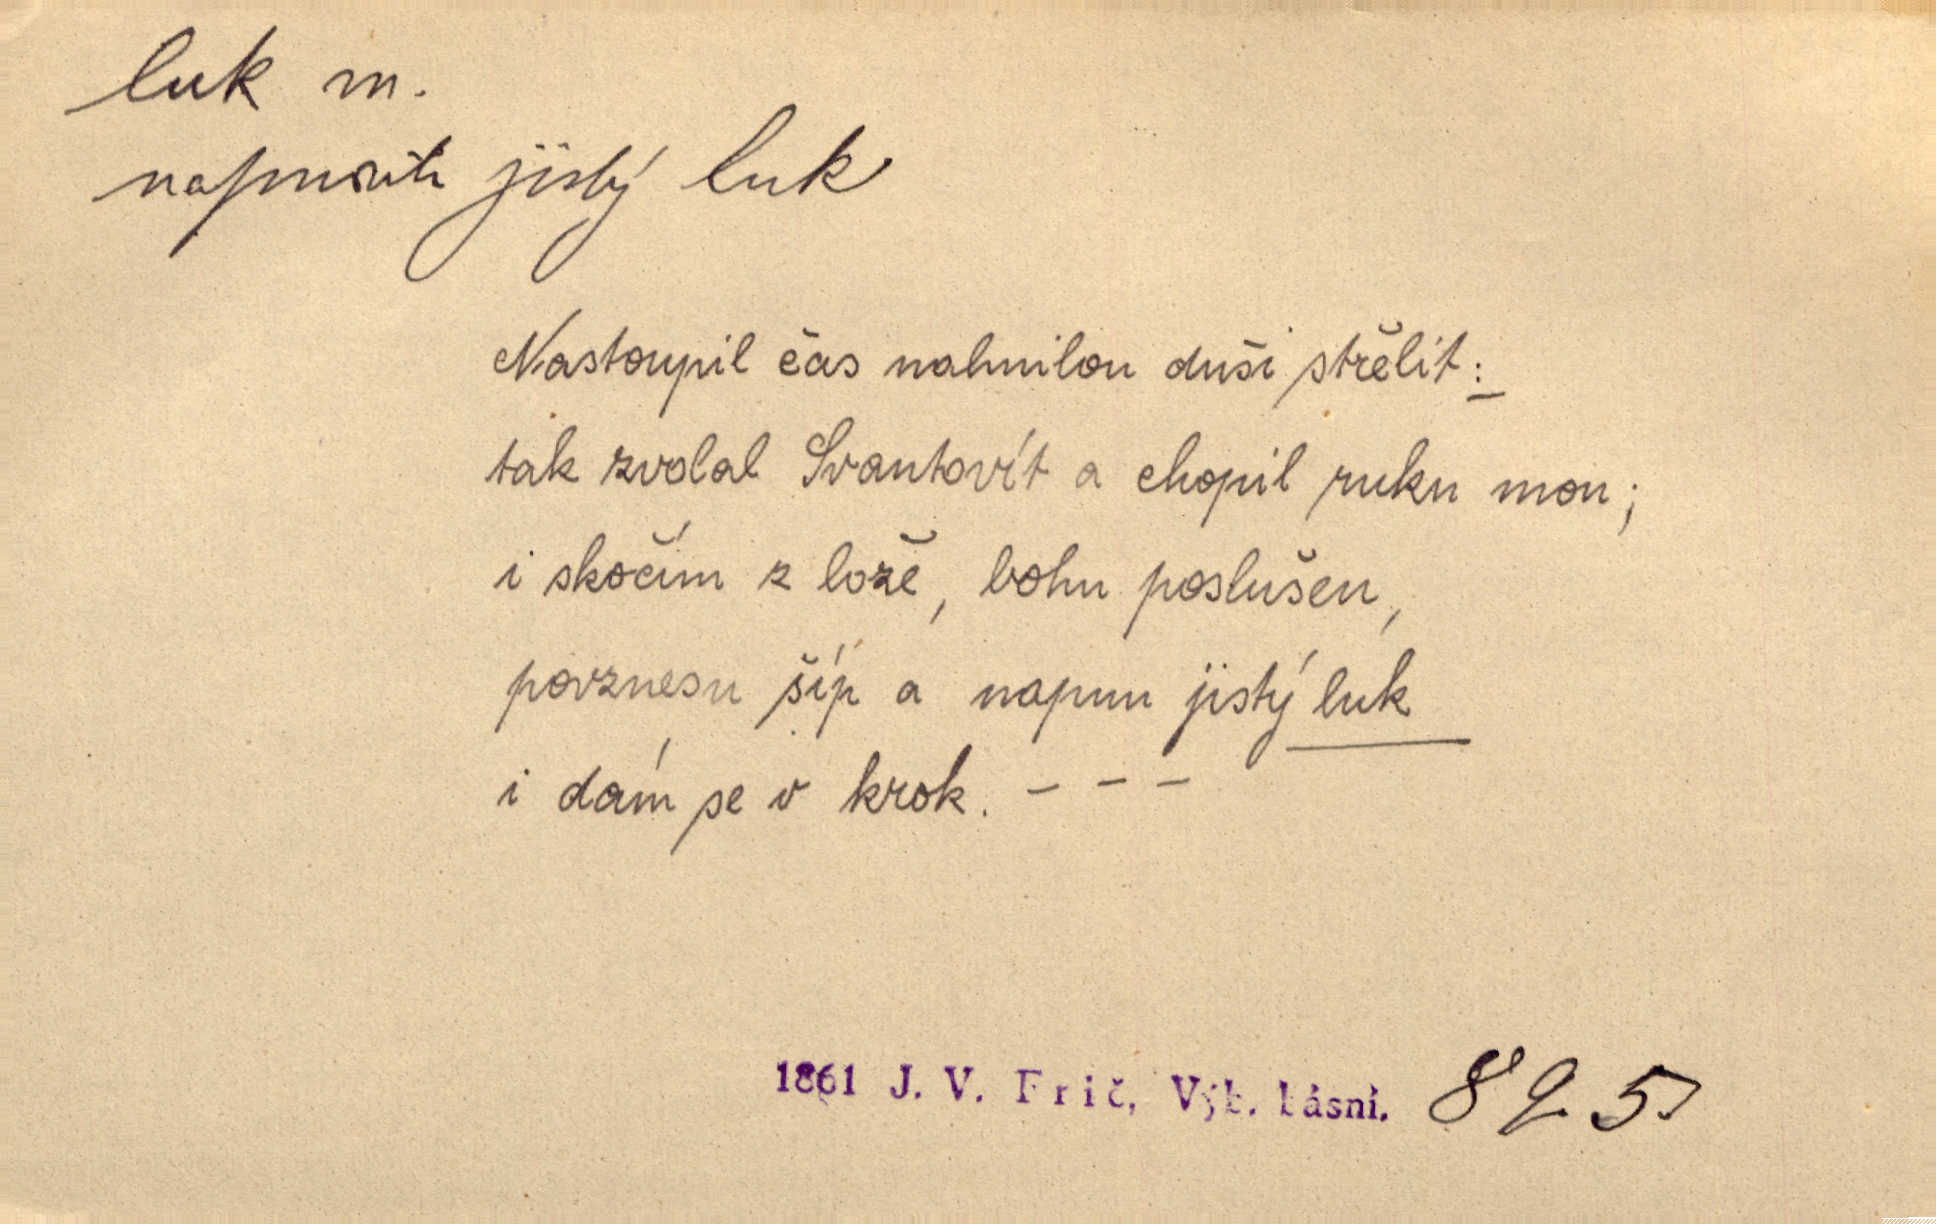 luk m.
napnouti jistý luk
Nastoupil čas nahnilou duši střelit:
tak zvolal Svantovít a chopil ruku mou;
i skočím z lože, bohu poslušen,
povznesu šíp a napnu jistý luk
i dám se v krok. - - -
1861 J. V. Frič, Výb. básní. 895